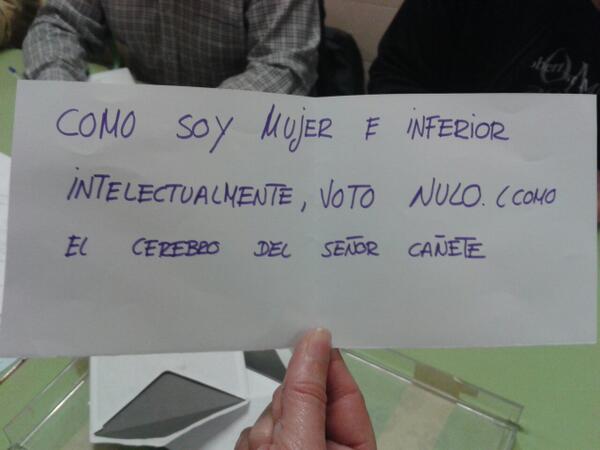 COMO SOY MUJER E INFERIOR
INTELECTUALMENTE, VOTO NULO. (COMO
EL CEREBRO DEL SEÑOR CAÑETE